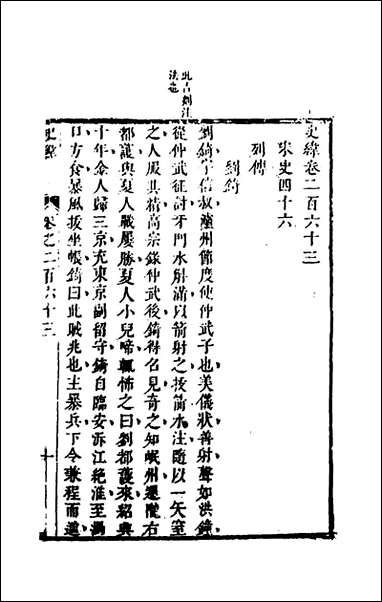 史緯卷二百六十三
宋史四十六
列傳
劉錡
劉錡字信叔瀘州節度使仲武子也美儀狀善射聲如洪鐘
從仲武征討牙門水斛滿以箭射之拔箭水注隨以一矢窒
之人服其精高宗錄仲武後錡得召見奇之知岷州還隴右
都護與夏人戰屢勝夏人小兒啼輒怖之曰劉都護來紹興
十年金人歸三京充東京副留守錡自臨安泝江絶淮至渦
口方食暴風拔坐帳錡曰此賊兆也主暴兵下令兼程而進
史緯
卷之二百六十三
十
此古刻注
法